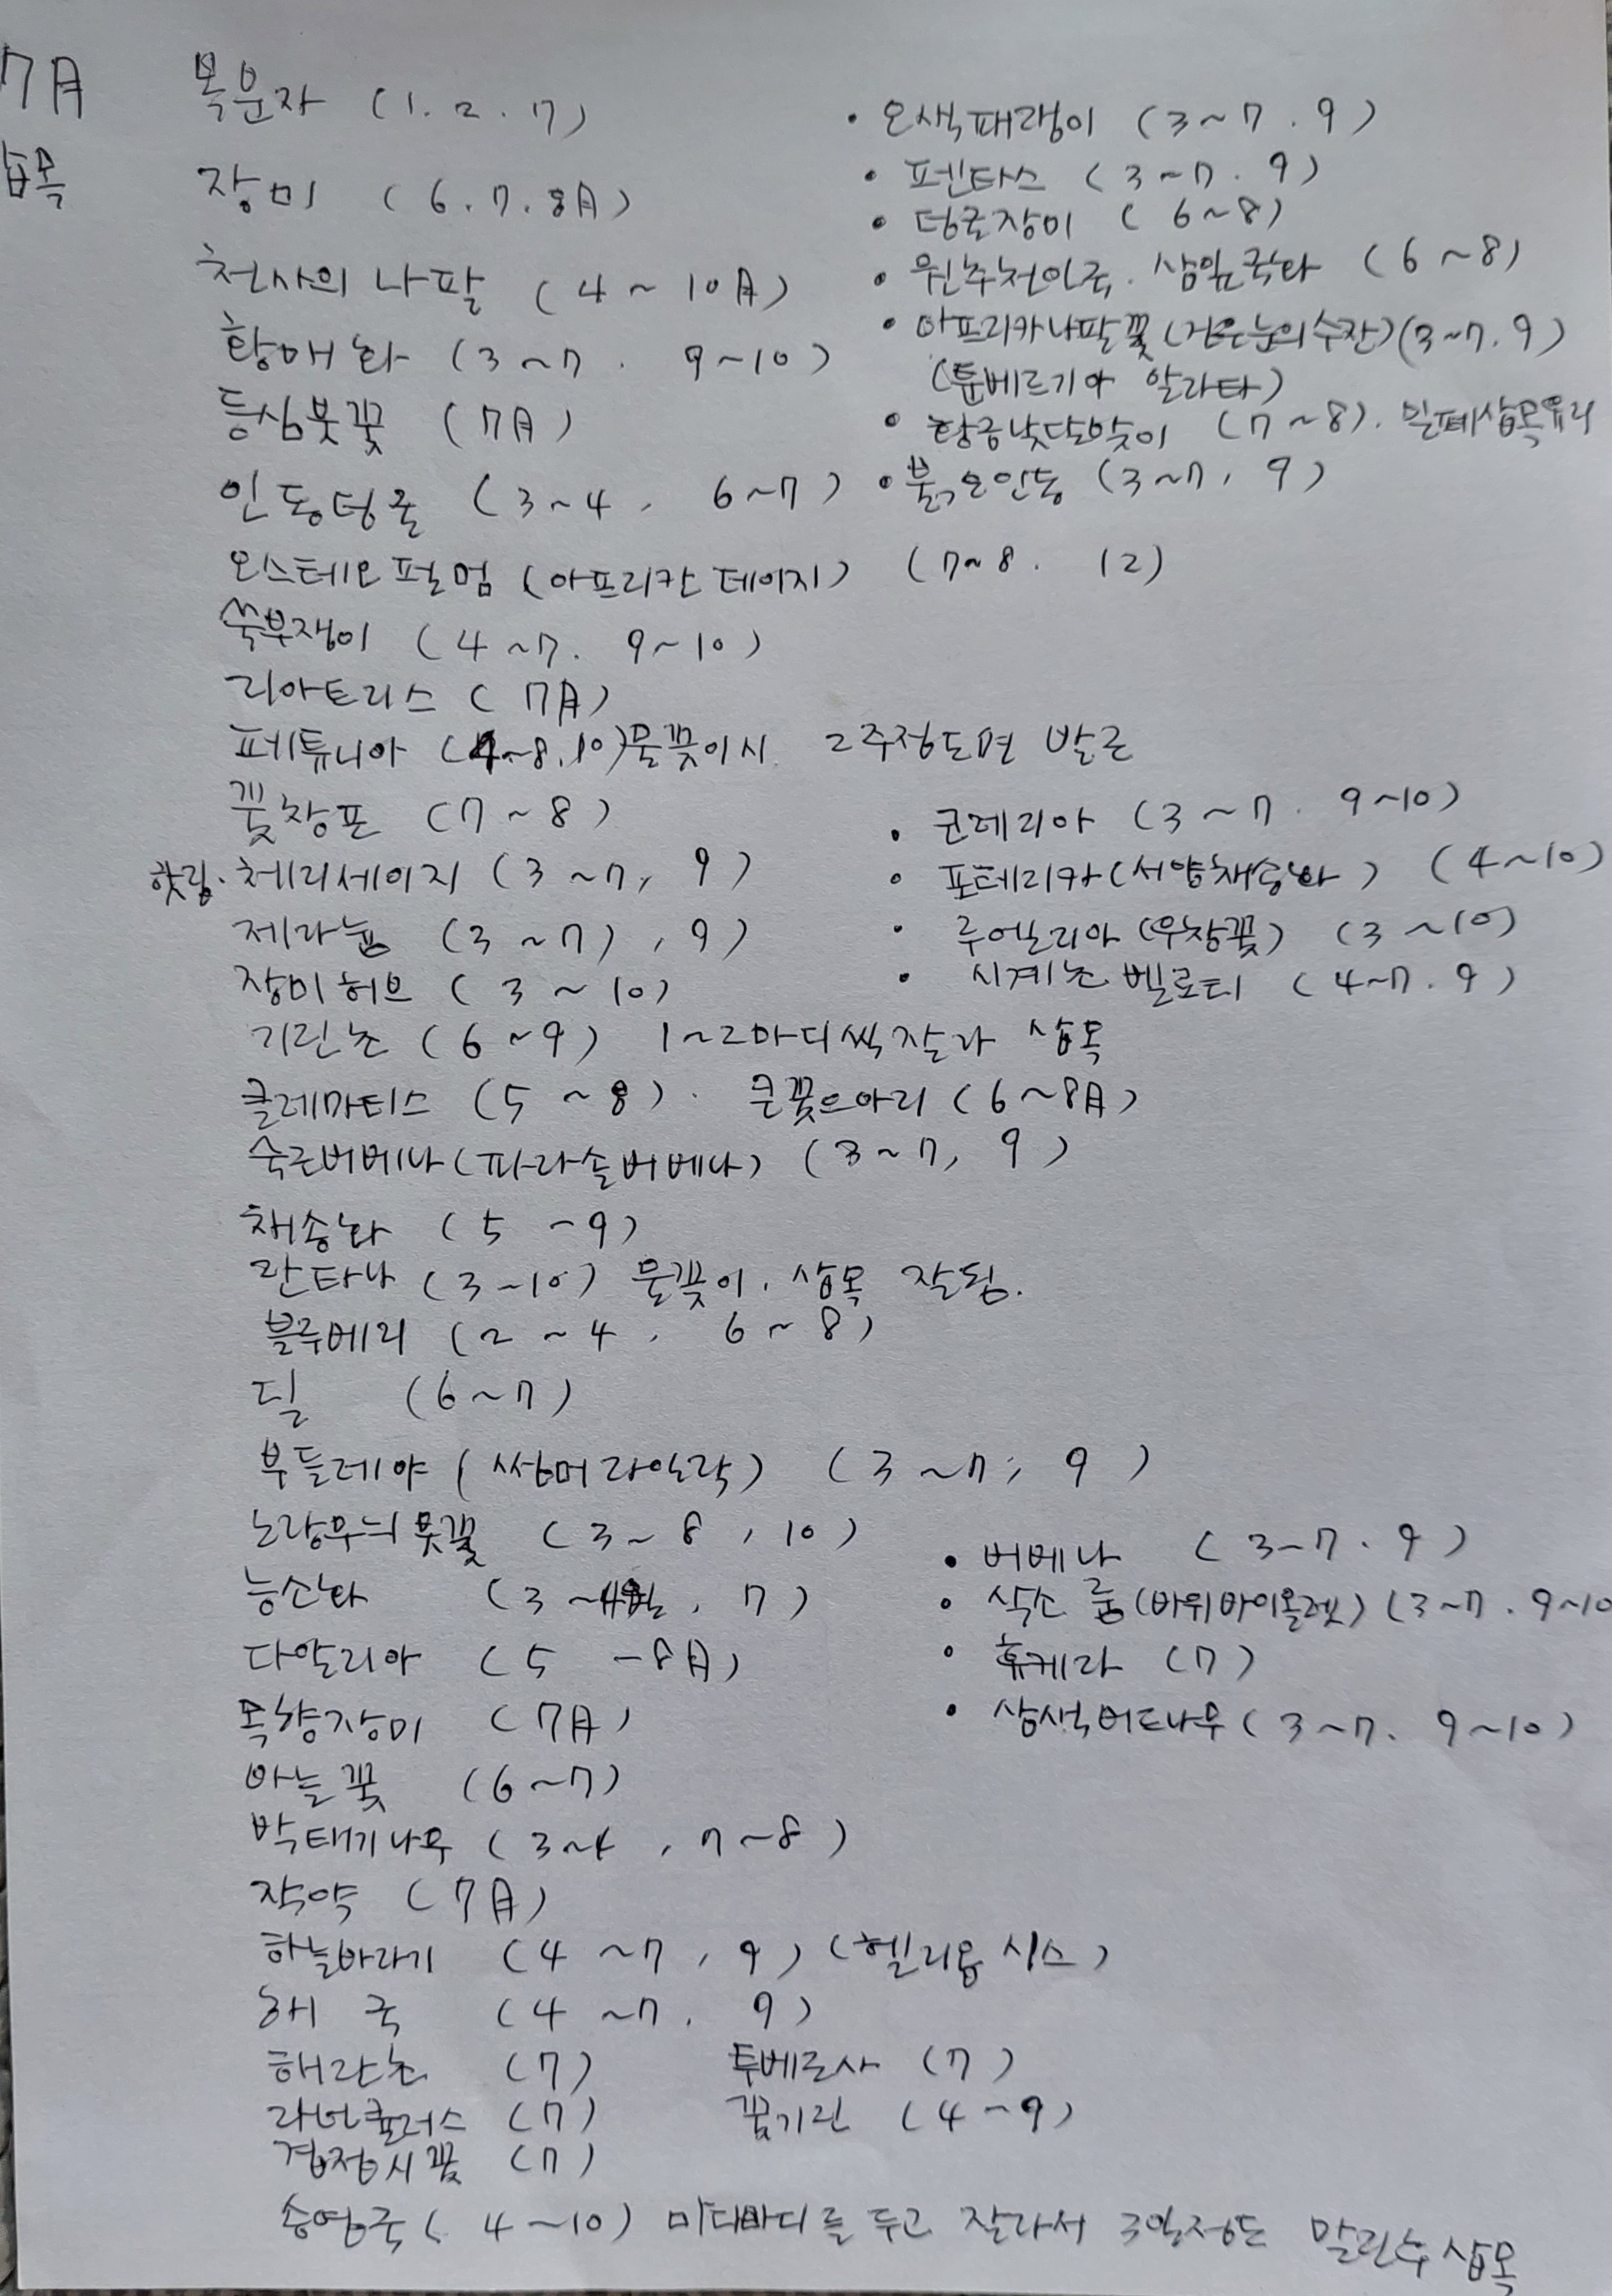 7月 복분자 (1. 2. 7)
삽목 장미 (6. 7. 8月)
천사의 나팔 (4 ~ 10月)
황매화 (3 ~ 7. 9~10)
등심붓꽃 (7月)
인동덩굴 (3~4, 6~7)
오스테오펄멈 (아프리칸 데이지) (7~8. 12)
쑥부쟁이 (4 ~ 7. 9~10)
리아트리스 (7月)
페튜니아 (4~8. 10) 물꽂이시 2주정도면 발근
꽃창포 (7 ~ 8)
핫립. 체리세이지 (3 ~ 7, 9)
제라늄 (3 ~ 7), 9)
장미허브 (3 ~ 10)
기린초 (6 ~ 9) 1~2마디씩 잘라 삽목
클레마티스 (5 ~ 8). 큰꽃으아리 (6~8月)
숙근버베나 (파라솔버베나) (3 ~ 7, 9)
채송화 (5 - 9)
란타나 (3~10) 물꽂이. 삽목 잘됨.
블루베리 (2 ~ 4, 6 ~ 8)
딜 (6 ~ 7)
부들레야 (썸머라일락) (3 ~ 7, 9)
노랑무늬붓꽃 (3 ~ 8, 10)
능소화 (3 ~ , 7)
다알리아 (5 - 8月)
목향장미 (7月)
바늘꽃 (6~7)
박태기나무 (3~4, 7~8)
작약 (7月)
하늘바라기 (4 ~ 7, 9) (헬리옵시스)
해국 (4 ~ 7. 9)
해란초 (7) 투베로사 (7)
라넌큘러스 (7) 꽃기린 (4 ~ 9)
접시꽃 (7)
송엽국 (4 ~ 10) 마디마디를 두고 잘라서 3일정도 말린후 삽목
• 오색패랭이 (3 ~ 7. 9)
• 펜타스 (3 ~ 7. 9)
• 덩굴장미 (6 ~ 8)
• 원추천인국. 삼잎국화 (6 ~ 8)
• 아프리카나팔꽃 (검은눈의수잔) (3~7. 9)
(툰베르기아 알라타)
• 황금낮달맞이 (7 ~ 8). 밀폐삽목유리
• 붉은인동 (3~7, 9)
• 코레리아 (3 ~ 7. 9~10)
• 포테리카 (서양채송화) (4 ~ 10)
• 루엘리아 (우창꽃) (3 ~ 10)
• 시계초 벨로티 (4~7. 9)
• 버베나 (3~7. 9)
• 삭소룸 (바위바이올렛) (3~7. 9~10
• 휴케라 (7)
• 삼색버드나무 (3 ~ 7. 9 ~ 10)